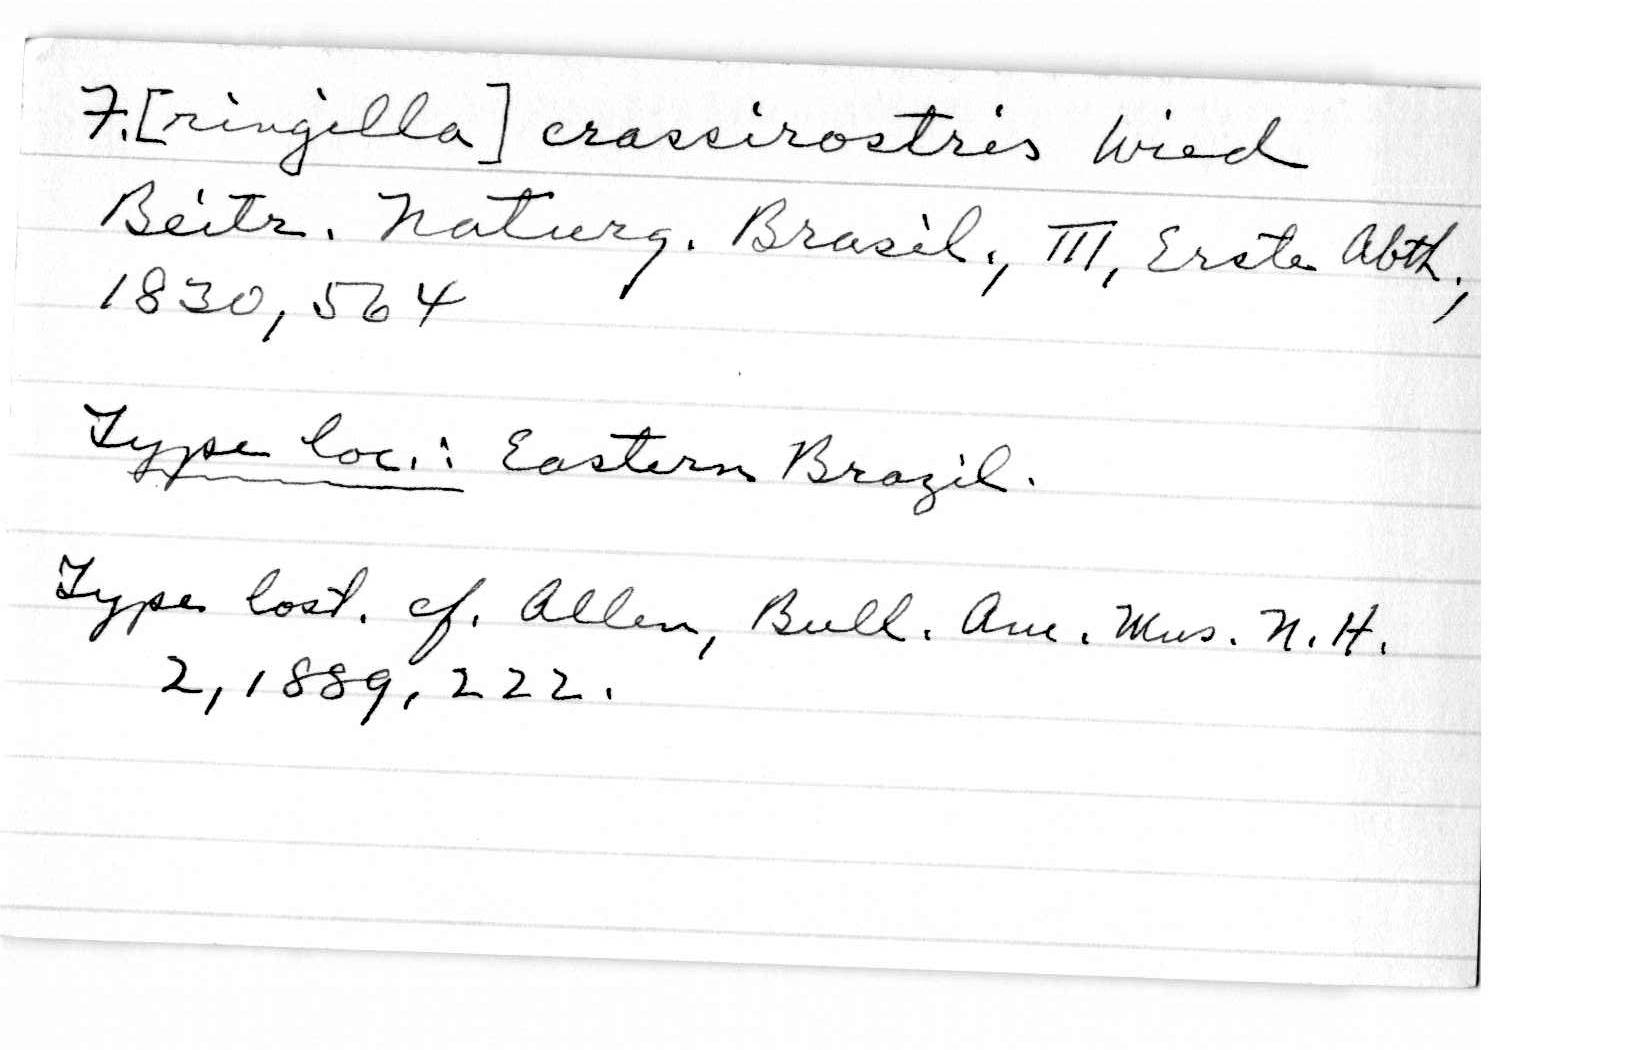 F.[ringilla] crassirostris Wied
Beitr. Naturg. Brasil., III, Erste Abth.,
1830, 564
Type loc.: Eastern Brazil.
Type lost. cf. Allen, Bull. Am. Mus. N.H.
2, 1889, 222.